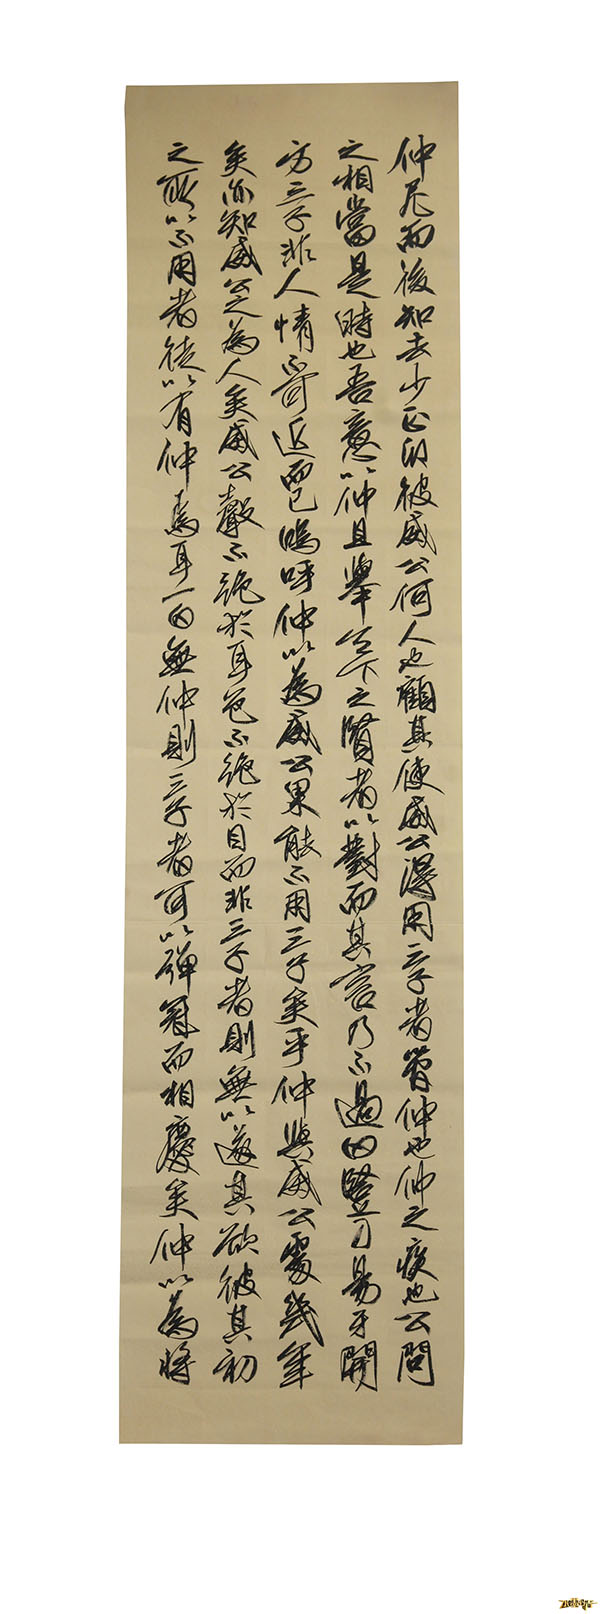 仲尼而後知去少正卯彼威公何人也顧其使威公得用三子者管仲也仲之疾也公問
之相當是時也吾意以仲且舉天下之賢者以對而其言乃不過曰豎刁易牙開
方三子非人情不可近而已嗚呼仲以為威公果能不用三子矣乎仲與威公處幾年
矣亦知威公之為人矣威公聲不絕於耳色不絕於目而非三子者則無以遂其欲彼其初
之所以不用者徒以有仲焉耳一日無仲則三子者可以彈冠而相慶矣仲以為將